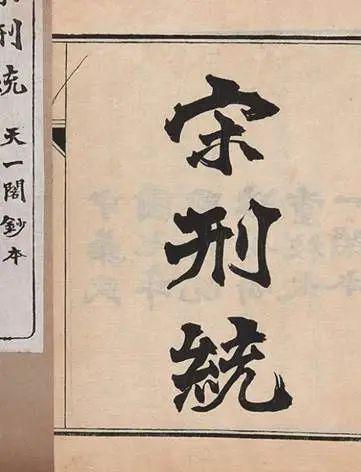 宋刑統
刑統 天一閣鈔本